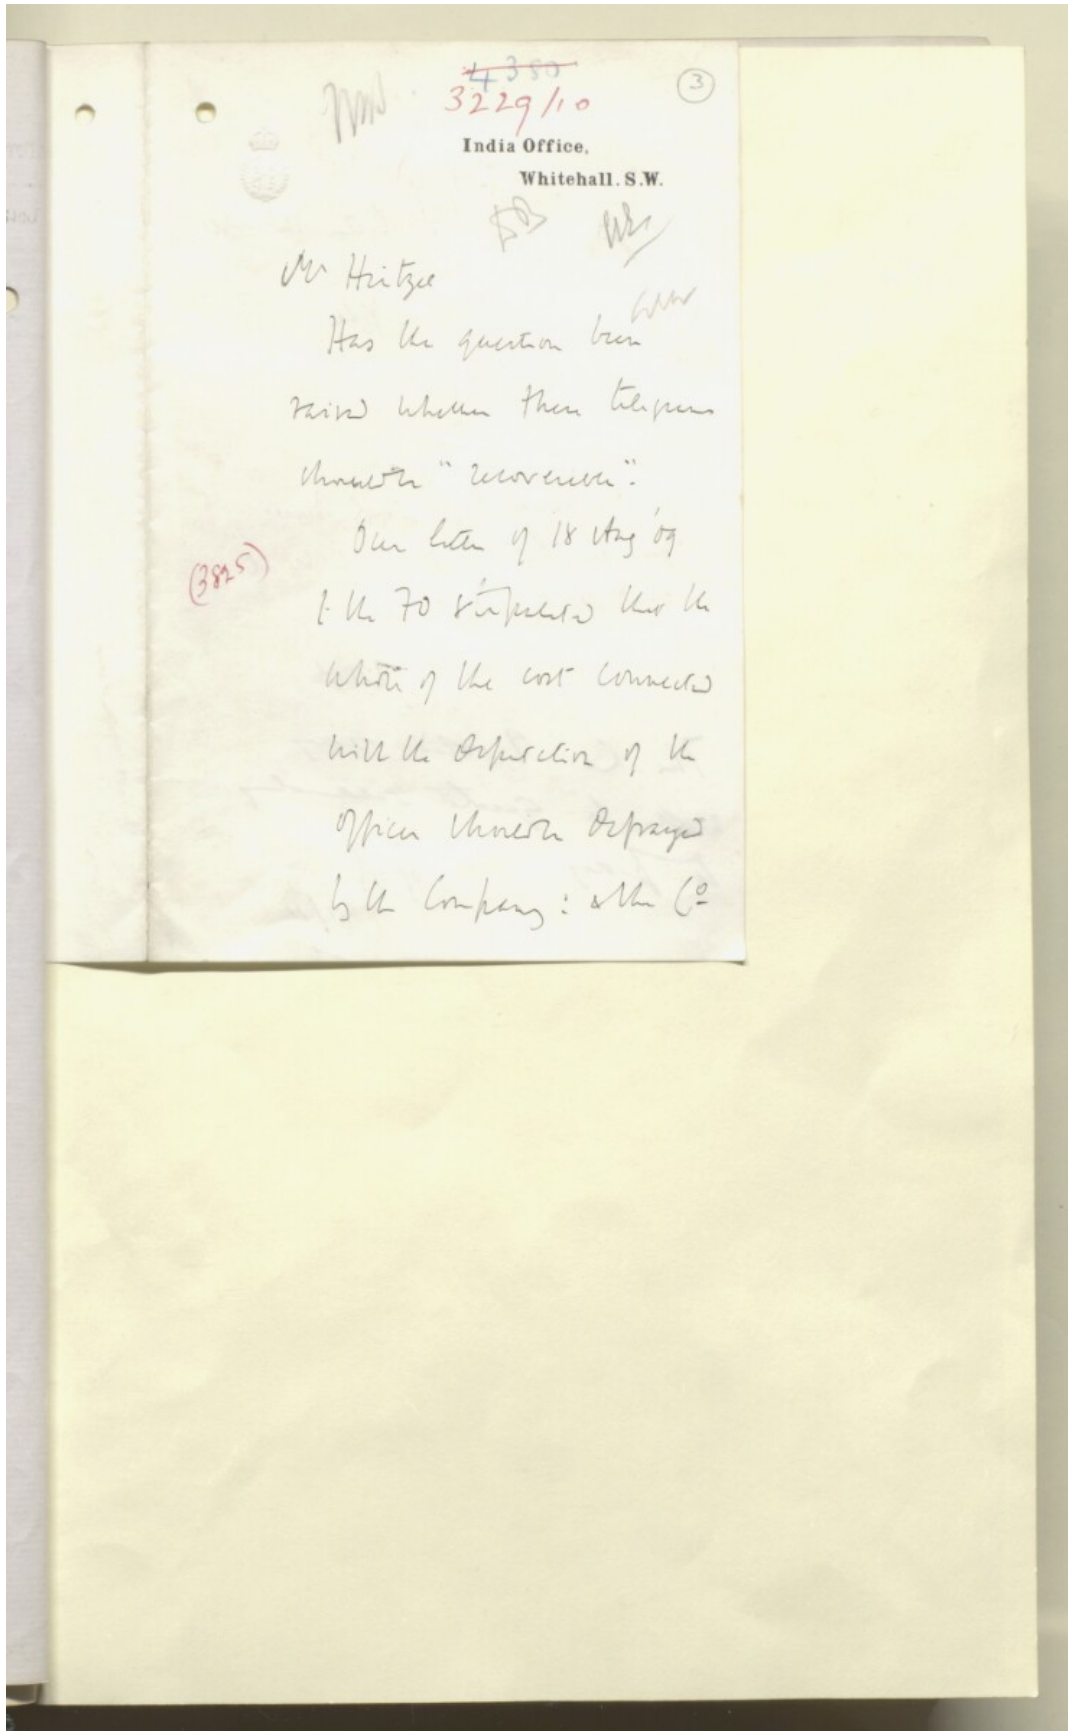 4380
3229/10
3
India Office,
Whitehall. S.W.
Mr Hirtzel
Has the question been
raised whether these telegrams
should be "recoverable".
Our letter of 18 Aug '09
(3825)
to the FO stipulated that the
whole of the cost connected
with the deputation of the
officer should be defrayed
by the Company: & the Co